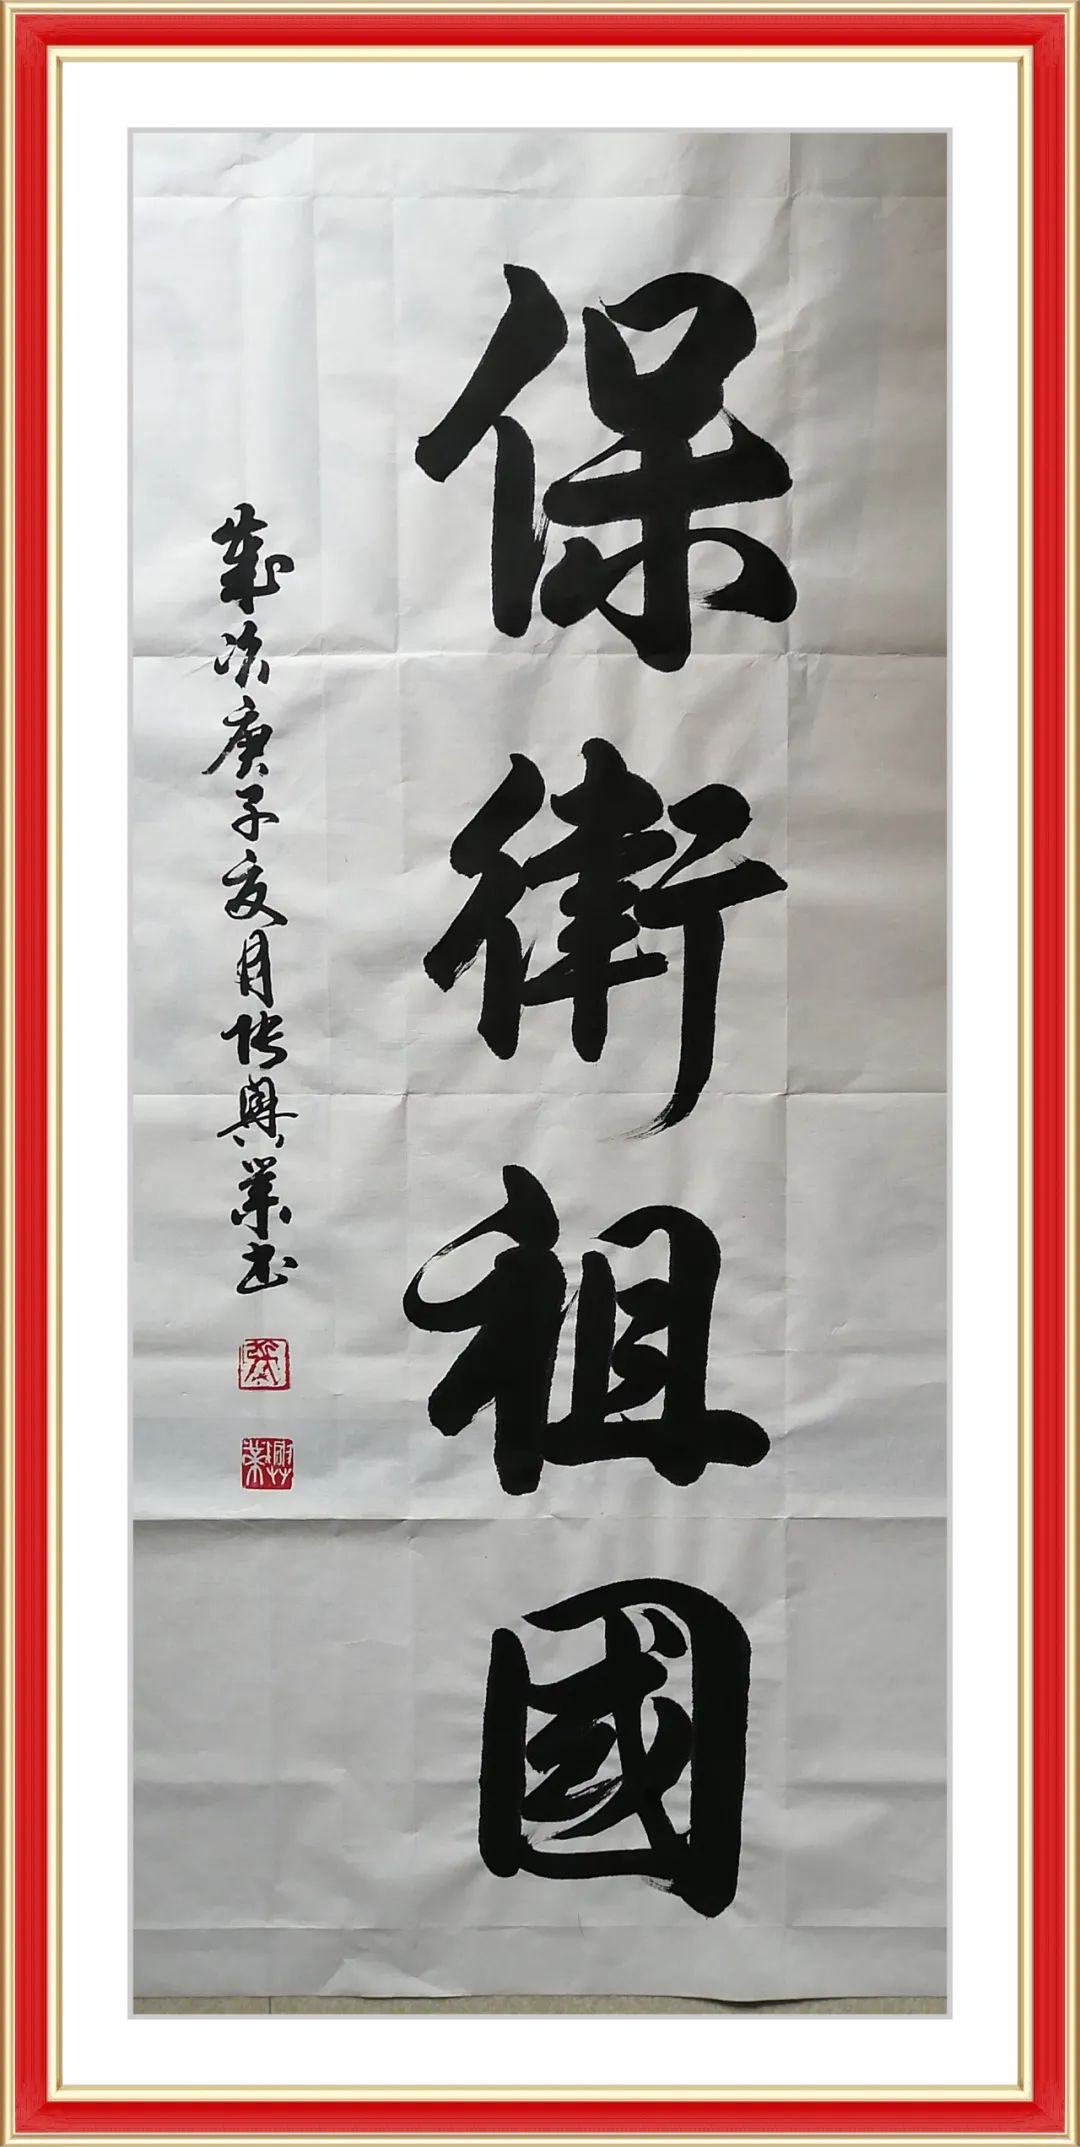 保衛祖國
歲次庚子夏月張興業书